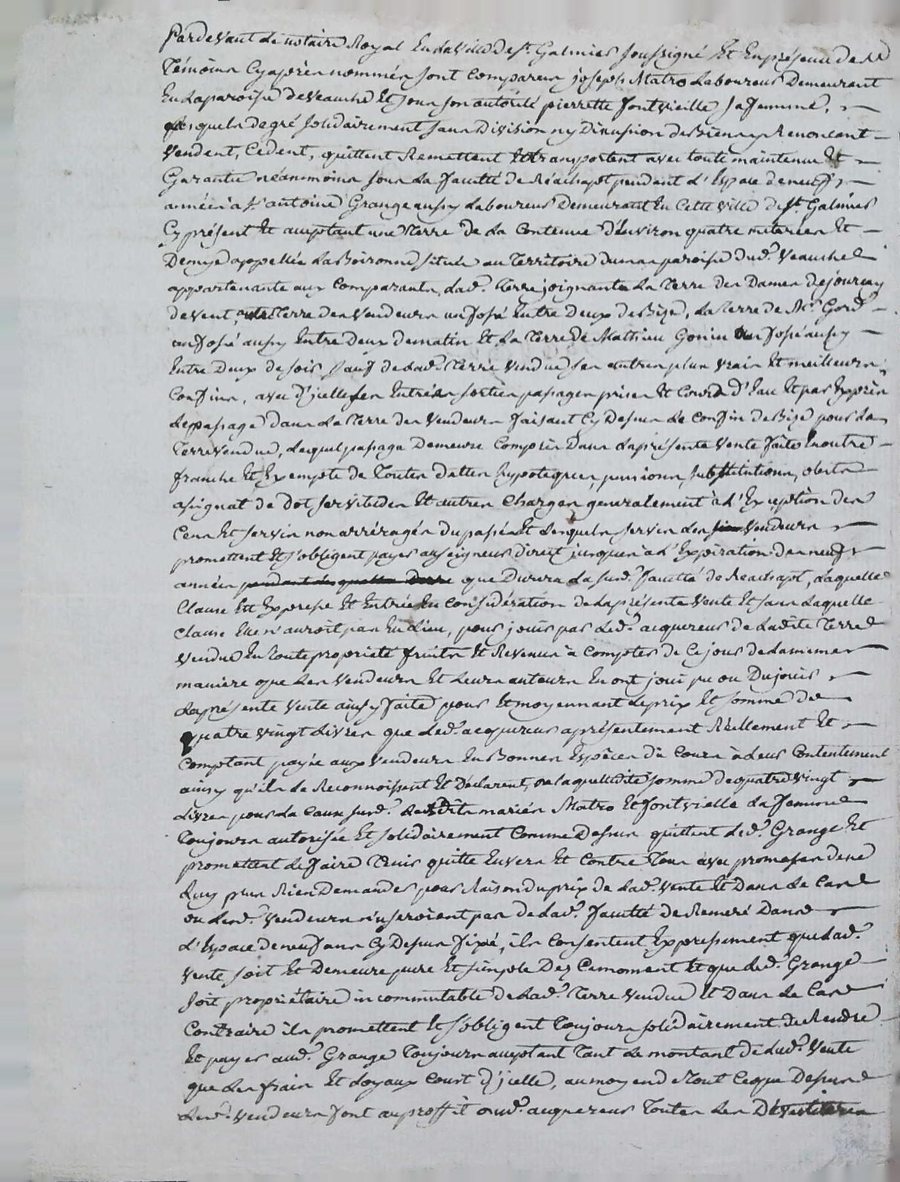 Pardevant le notaire Royal En la ville de st. Galmier soussigné Et En présence des
Témoins Cy après nommés sont comparus joseph Matro Laboureur Demeurant
En la paroisse de veauche Et sous son autorité pierrette fontvieille sa femme,
lesquels de gré solidairement sans Division ny Discussion de Biens y Renoncant
vendent, Cedent, quittent Remettent Et transportent avec toute maintenue Et
Garantie néanmoins sous la faculté de Réachapt pendant L'Espace de neuf
années à antoine Grange aussy Laboureur Demeurant En Cette ville de st. Galmier
Cy présent Et acceptant une Terre de la Contenue d'Environ quatre meterées Et
Demye appellée La Boironne située au Territoire de paroisse dud. veauche
appartenante aux Comparants, lad. Terre joignante La Terre des Dames de jourcey
de vent, Terre des vendeurs un fossé Entre Deux de Bize, la Terre de Mr. Gord
un fossé aussy Entre deux de matin Et La Terre de Mathieu Gonin un fossé aussy
Entre Deux de soir sauf de lad. Terre vendue ses autres plus vrais Et meilleurs
Confins, avec d'jcelle ses Entrées sorties passages prises Et Cours d'Eau Et par Exprès
le passage dans la Terre des vendeurs faisant Cy Dessus le confin de Bize pour la
Terre vendue, Lequel passage Demeure Compris Dans la présente vente faite En outre
franche Et Exempte de Toutes dettes hypoteques, pensions, substitutions, obets
assignat de dot servitudes Et autres Charges generalement à L'Exception des
Cens Et servis non arréragés du passé Et desquels servis les vendeurs
promettent Et s'obligent payer au seigneur direct jusques à L'Expiration des neuf
années pendant lesquelles durera que Durera La sud. faculté de Reachapt, Laquelle
Clause Est Expresse Et Entrée En Considération de la présente vente Et sans laquelle
Clause Elle n'auroit pas Eu Lieu, pour jouir par led. acquereur de ladite Terre
vendue En toute propriété fruits Et Revenus à Compter de Ce jour de la meme
maniere que les vendeurs Et leurs auteurs En ont joui pu ou Du jouir
La présente vente ainsy faite pour Et moyennant le prix Et somme de
quatre vingt Livres que led. acquereur a présentement Réellement Et
Comptant payée aux vendeurs En Bonnes Espèces de Cours à Leur Contentement
ainsy qu'ils Le Reconnoissent Et Déclarent, de laquelle dite somme de quatre vingt
Livres pour La Cause sud. lesdits mariés Matro Et fontvieille La femme
Toujours autorisée Et solidairement Comme Dessus quittent led. Grange Et
promettent le faire Tenir quitte Envers Et Contre Tous avec promesse de ne
Luy plus Rien Demander pour Raison du prix de lad. vente Et Dans le Cas
ou Lesd. vendeurs n'useroient pas de lad. faculté de Remeré Dans
L'Espace de neuf ans Cy Dessus fixé, ils Consentent Expressement que lad.
vente soit Et Demeure pure Et simple Dez Ce moment Et que led. Grange
soit propriétaire incommutable de lad. Terre vendue Et Dans Le Cas
Contraire ils promettent Et s'obligent Toujours solidairement de Rendre
Et payer aud. Grange Toujours acceptant Tant le montant de lad. vente
que les frais Et Loyaux Cout d'jcelle, au moyen de tout Ce que Dessus
Lesd. vendeurs font au proffit dud. acquereur Toutes Les